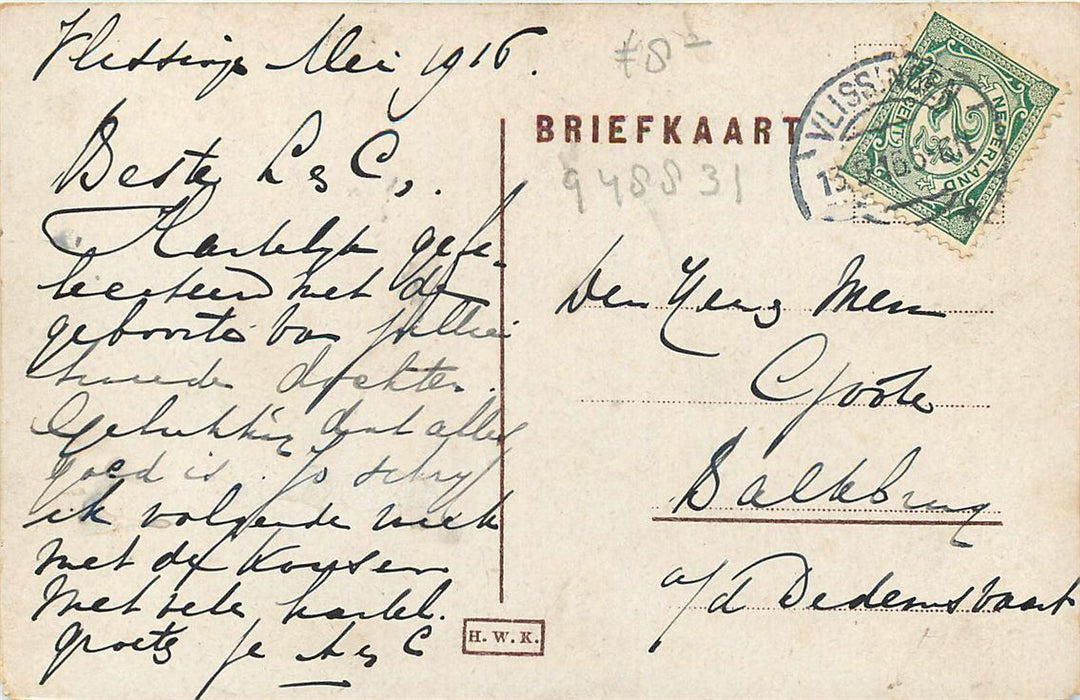 Vlissinge Mei 1916.
Beste L en C,.
Hartelijk gefe-
liciteerd met de
geboorte van jullie
tweede dochter.
Gelukkig dat alles
goed is. Jo schrijf
ik volgende week
met de kousen
Met vele hartel.
groete je A en C
78-
BRIEFKAART
948831
VLISSINGEN
13
NEDERLAND
Den Heer Men
Goote
Balkbrug
a/d Dedemsvaart
H. W. K.